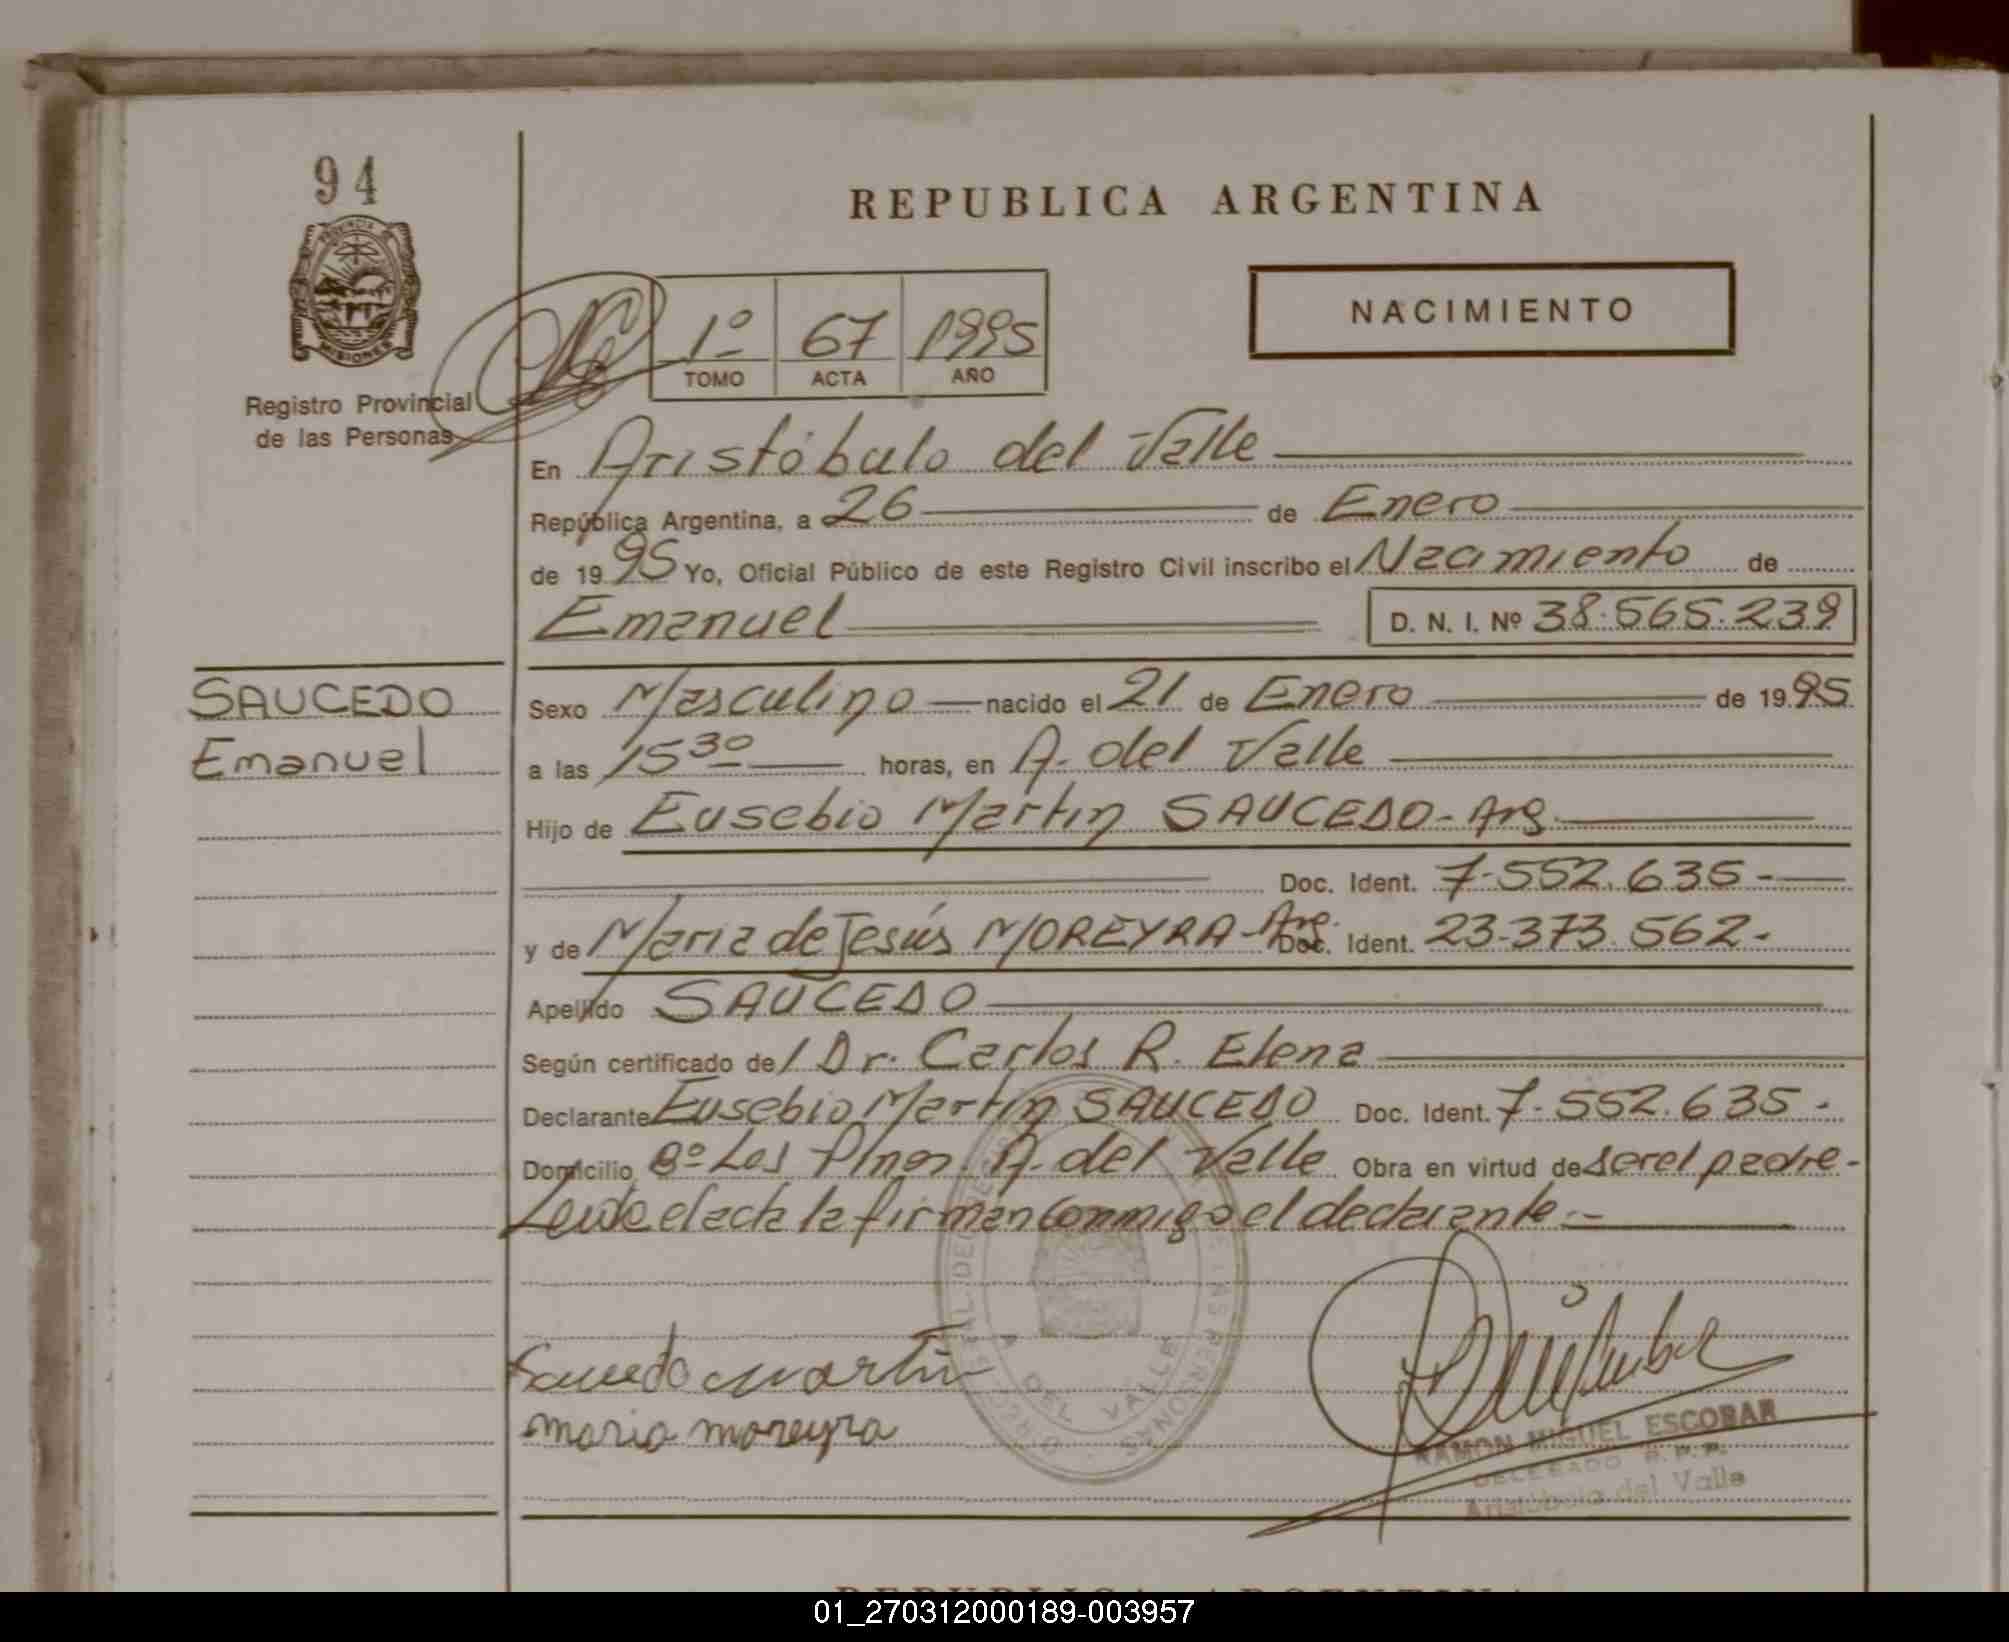 94
REPUBLICA ARGENTINA
PROVINCIA DE
MISIONES
NACIMIENTO
1º 67 1995
TOMO ACTA AÑO
Registro Provincial
de las Personas
En Aristóbulo del Valle
República Argentina, a 26 de Enero
de 1995 Yo, Oficial Público de este Registro Civil inscribo el Nacimiento de
Emanuel D. N. I. Nº 38.565.239
SAUCEDO
Emanuel
Sexo Masculino nacido el 21 de Enero de 1995
a las 15 30 horas, en A. del Valle
Hijo de Eusebio Martin SAUCEDO - Arg.
Doc. Ident. 7.552.635.-
y de Maria de Jesús MOREYRA - Arg. Doc. Ident. 23.373.562.-
Apellido SAUCEDO
Según certificado del Dr. Carlos R. Elena
Declarante Eusebio Martín SAUCEDO Doc. Ident. 7.552.635.-
Domicilio Bº Los Pinos. A. del Valle Obra en virtud de ser el padre.-
Leida el acta la firman conmigo el declarante.-
A DEL VALLE
Saucedo Martin
maria moreyra
RAMON MIGUEL ESCOBAR
DELEGADO R.P.P.
Aristóbulo del Valle
REPUBLICA ARGENTINA
01_270312000189-003957